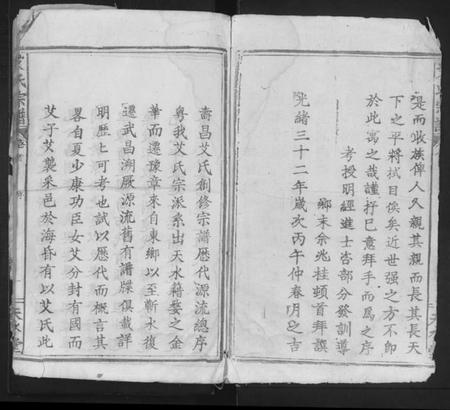 是而收族俾人人親其親而長其長天
下之平將拭目俟矣近世强之方不卽
於此寓之哉謹抒巳意拜手而爲之序
考授明經進士吿部分發訓導
鄉末余兆桂頓首拜譔
光緒三十二年歲次丙午仲春月之吉
壽昌艾氏創修宗譜歷代源流總序
粤我艾氏宗派系出天水籍婺之金
華而遷豫章來自東鄉以至蘄水復
遷武昌溯厥源流舊有譜牒俱載詳
明歷歷可考也試以歷代而概言其
畧自夏少康功臣女艾分封有國而
艾子艾襲采邑於海昏有以艾氏此
艾氏宗譜
天水堂